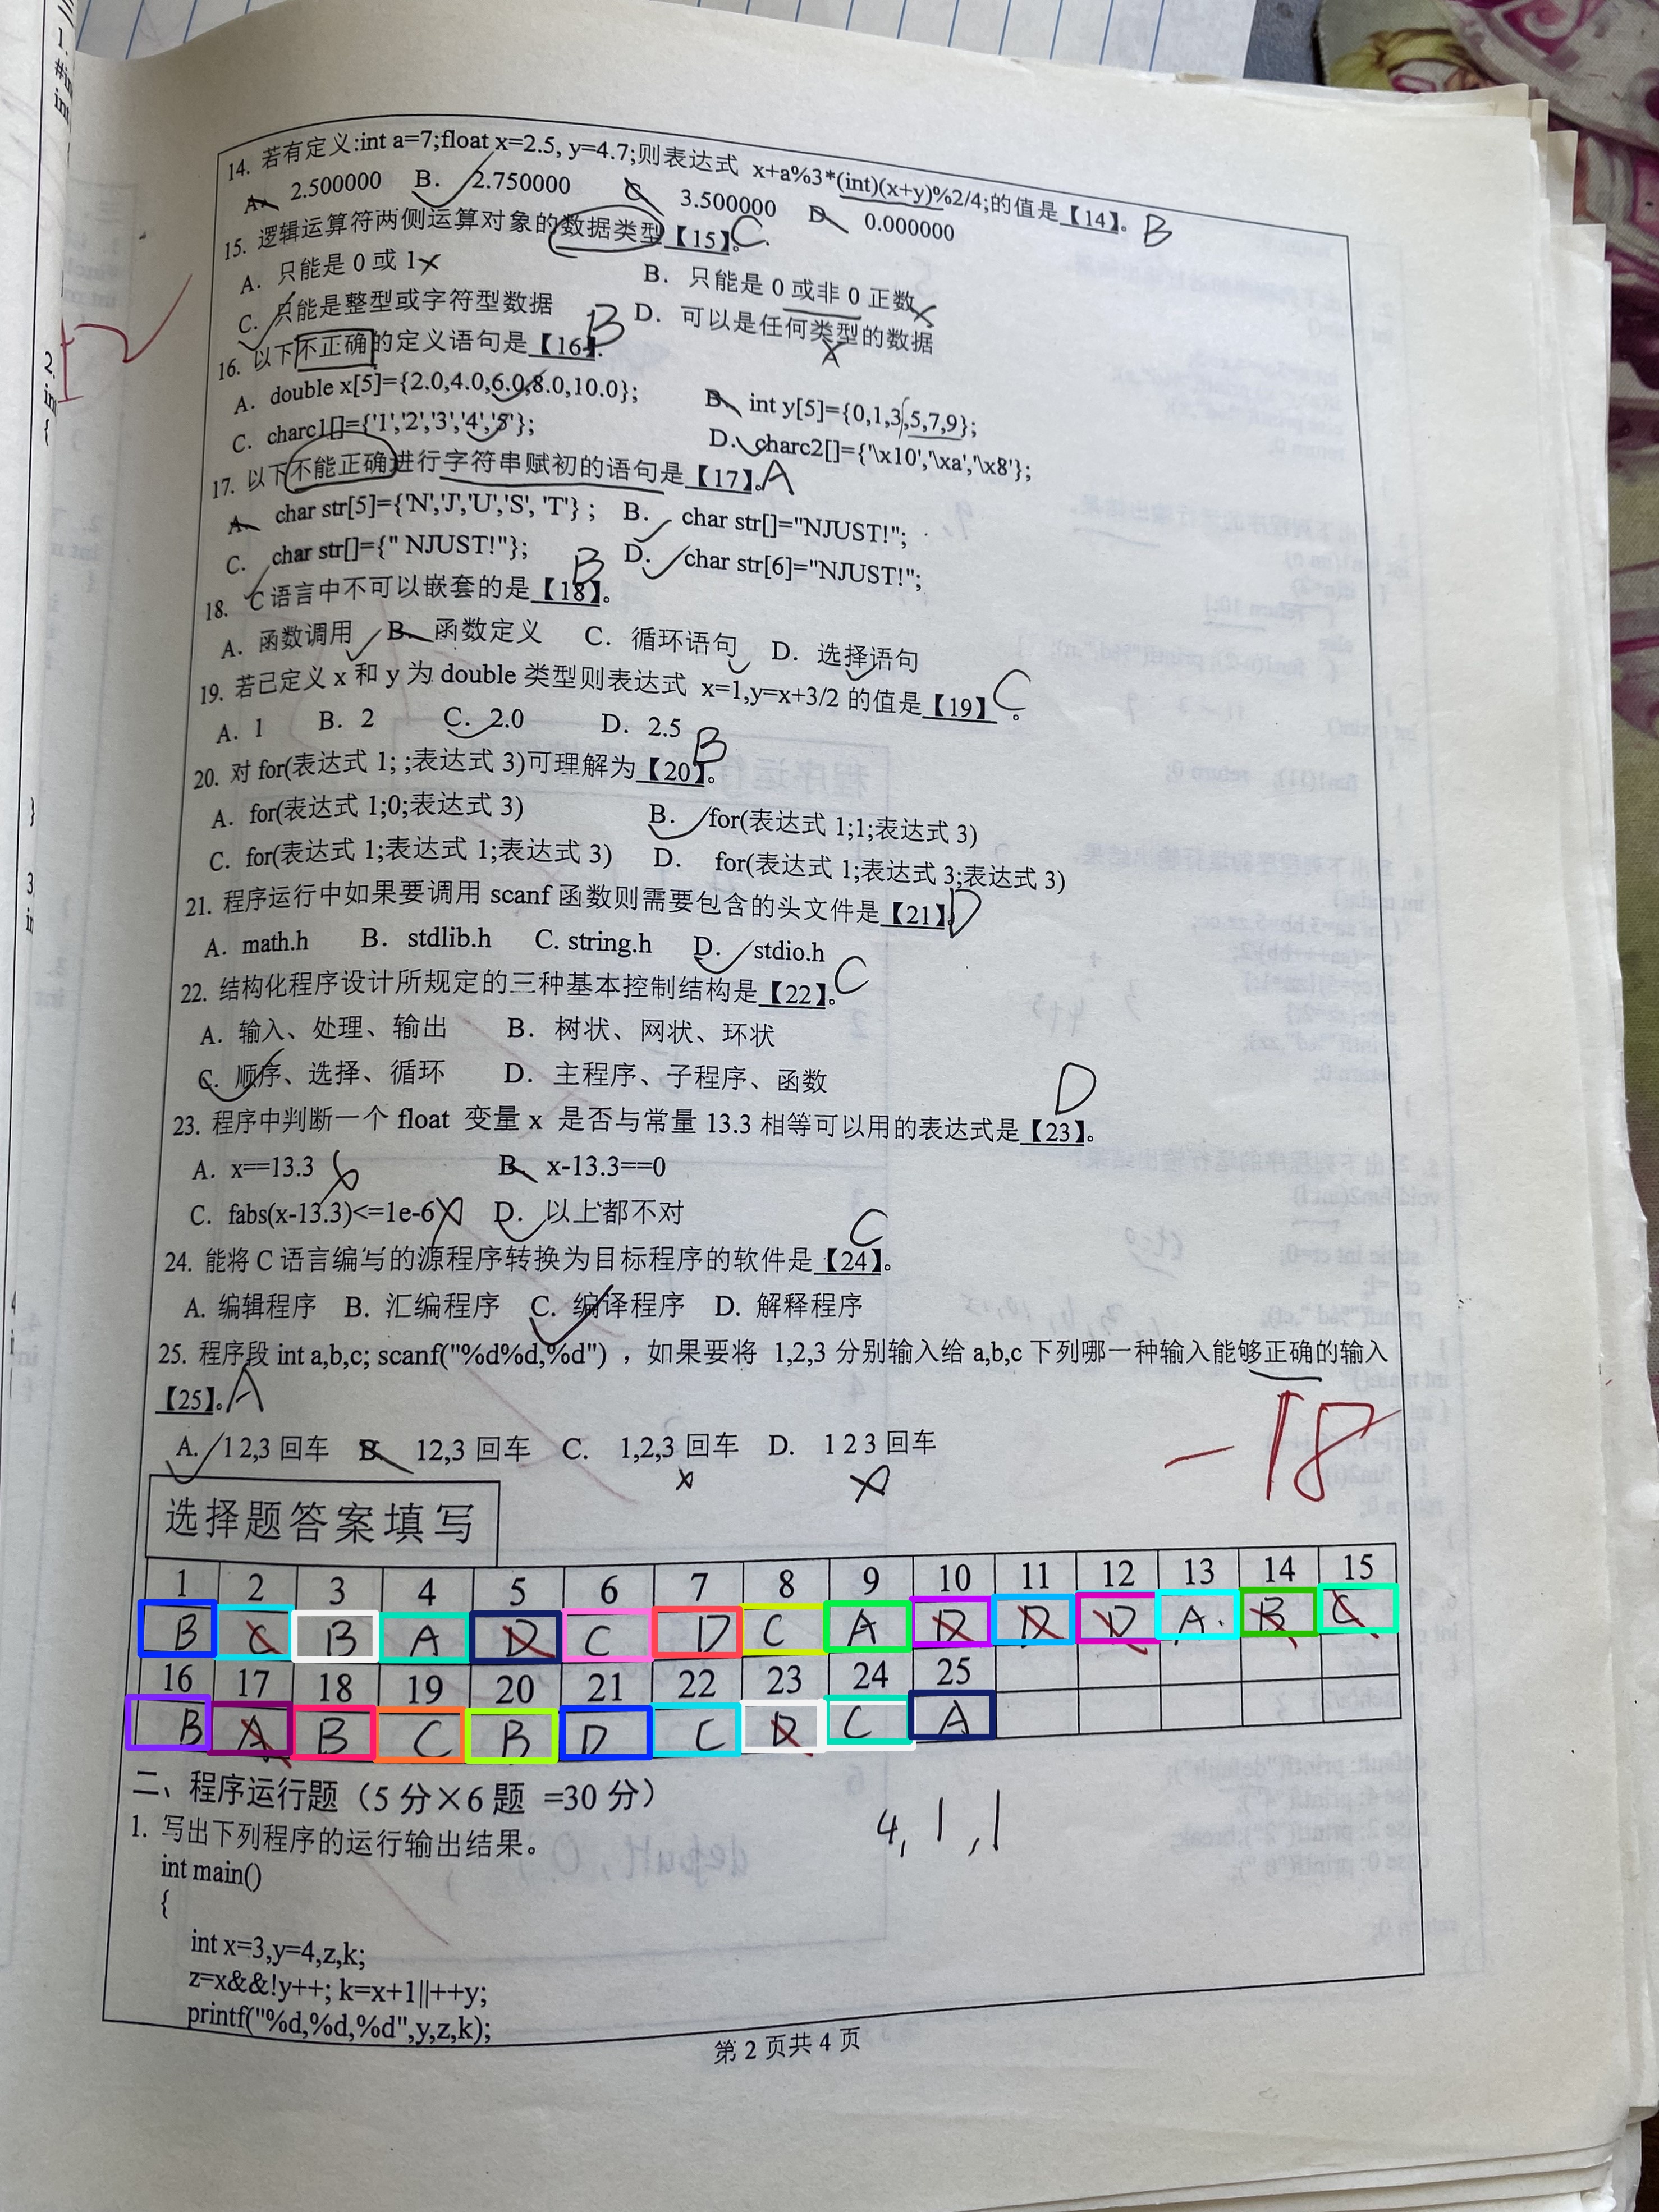 14. 若有定义:int a=7;float x=2.5, y=4.7;则表达式 x+a%3*(int)(x+y)%2/4;的值是【14】。 B
A. 2.500000 B. 2.750000 C. 3.500000 D. 0.000000
15. 逻辑运算符两侧运算对象的数据类型【15】。 C.
A. 只能是 0 或 1 B. 只能是 0 或非 0 正数
C. 只能是整型或字符型数据 D. 可以是任何类型的数据
16. 以下不正确的定义语句是【16】. B
A. double x[5]={2.0,4.0,6.0,8.0,10.0}; B. int y[5]={0,1,3,5,7,9};
C. charc1[]={'1','2','3','4','5'}; D. charc2[]={'\x10','\xa','\x8'};
17. 以下不能正确进行字符串赋初的语句是【17】。 A
A. char str[5]={'N','J','U','S', 'T'} ; B. char str[]="NJUST!";
C. char str[]={" NJUST!"}; D. char str[6]="NJUST!";
18. C 语言中不可以嵌套的是【18】。 B
A. 函数调用 B. 函数定义 C. 循环语句 D. 选择语句
19. 若已定义 x 和 y 为 double 类型则表达式 x=1,y=x+3/2 的值是【19】 C 。
A. 1 B. 2 C. 2.0 D. 2.5
20. 对 for(表达式 1; ;表达式 3)可理解为【20】。 B
A. for(表达式 1;0;表达式 3) B. for(表达式 1;1;表达式 3)
C. for(表达式 1;表达式 1;表达式 3) D. for(表达式 1;表达式 3;表达式 3)
21. 程序运行中如果要调用 scanf 函数则需要包含的头文件是【21】. D
A. math.h B. stdlib.h C. string.h D. stdio.h
22. 结构化程序设计所规定的三种基本控制结构是【22】。 C
A. 输入、处理、输出 B. 树状、网状、环状
C. 顺序、选择、循环 D. 主程序、子程序、函数
23. 程序中判断一个 float 变量 x 是否与常量 13.3 相等可以用的表达式是【23】。 D
A. x==13.3 B. x-13.3==0
C. fabs(x-13.3)<=1e-6 D. 以上都不对
24. 能将 C 语言编写的源程序转换为目标程序的软件是【24】。 C
A. 编辑程序 B. 汇编程序 C. 编译程序 D. 解释程序
25. 程序段 int a,b,c; scanf("%d%d,%d") ，如果要将 1,2,3 分别输入给 a,b,c 下列哪一种输入能够正确的输入
【25】。 A
A. 1 2,3 回车 B. 12,3 回车 C. 1,2,3 回车 D. 1 2 3 回车
-18
选择题答案填写
1 2 3 4 5 6 7 8 9 10 11 12 13 14 15
B C B A D C D C A D D D A. B C
16 17 18 19 20 21 22 23 24 25
B A B C B D C D C A
二、程序运行题（5 分×6 题 =30 分）
1. 写出下列程序的运行输出结果。
4, 1, 1
int main()
{
int x=3,y=4,z,k;
z=x&&!y++; k=x+1||++y;
printf("%d,%d,%d",y,z,k);
第 2 页共 4 页